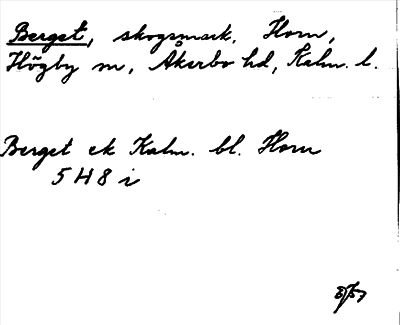 Berget, skogsmark, Horn,
Högby sn, Åkerbo hd, Kalm. l.
Berget ek Kalm. bl. Horn
5 H 8 i